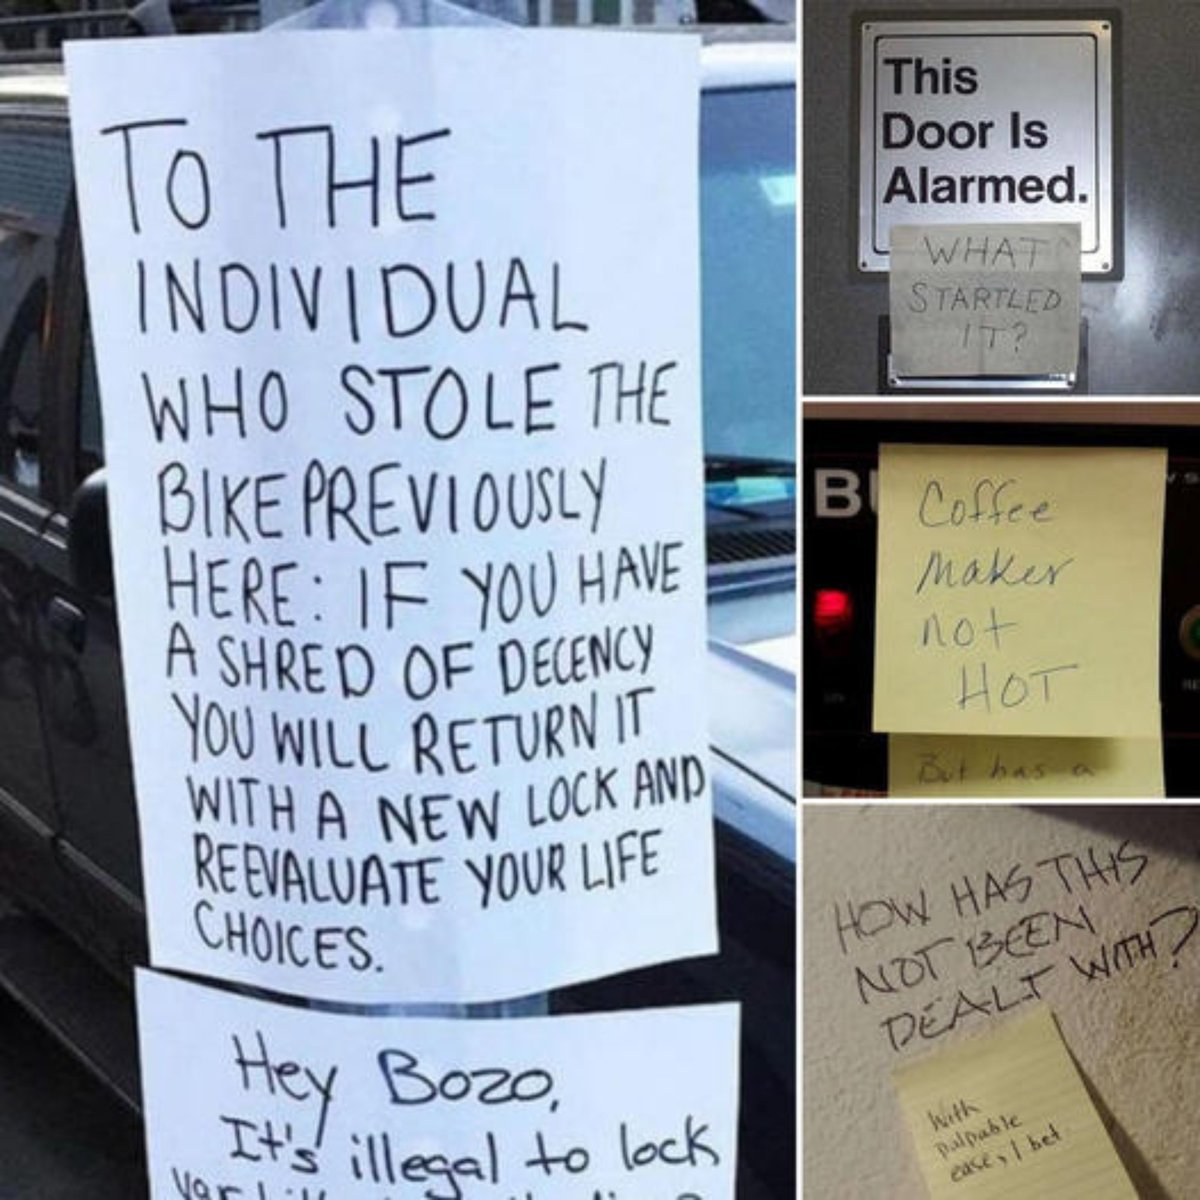 TO THE
INDIVIDUAL
WHO STOLE THE
BIKE PREVIOUSLY
HERE: IF YOU HAVE
A SHRED OF DECENCY
YOU WILL RETURN IT
WITH A NEW LOCK AND
REEVALUATE YOUR LIFE
CHOICES.
Hey Bozo,
It's illegal to lock
This
Door Is
Alarmed.
WHAT
STARTLED
IT?
Coffee
Maker
not
HOT
But has a
HOW HAS THIS
NOT BEEN
DEALT WITH?
With
palpable
ease, I bet